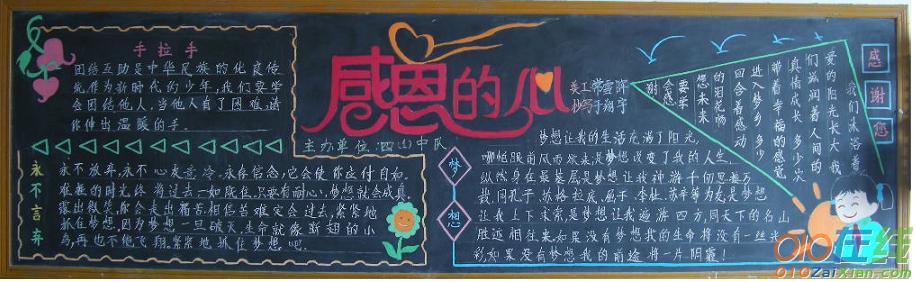 手拉手
团结互助是中华民族的优良传
统作为新时代的少年,我们要学
会团结他人,当他人有了困难,请
你伸出温暖的手.
感恩的心
主办单位:四(1)中队
感谢您
永不言弃
永不放弃,永不心灰意冷。永存信念,它会使你应付自如。
难熬的时光终将过去一如既往,只要有耐心,梦想就会成真
露出微笑,你会走出痛苦,相信苦难定会过去,紧紧地
抓住梦想,因为梦想一旦破灭,生命就像断翅的小
鸟,再也不能飞翔.紧紧地抓住梦想吧
我们沐浴着
爱的阳光长大我
们滋润着人间的
真情成长多少次
带着幸福的感觉
进入梦乡多少
回含着感动
的泪花畅
想未来
要学
会感
谢
梦想
梦想让我的生活充满了阳光,
哪怕眼前风雨欲来,是梦想改变了我的人生,
让我上下求索是梦想让我遨游四方,同天下的名山
胜迹相往来.如果没有梦想我的生命将没有一丝光
彩如果没有梦想我的前途将一片阴霾!
010在线
010ZaiXian.com